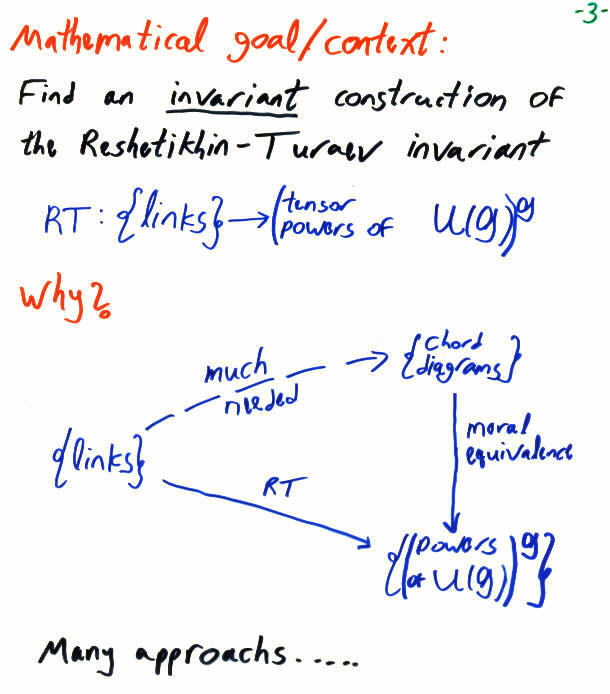 -3-
Mathematical goal/context:
Find an invariant construction of
the Reshetikhin-Turaev invariant
RT: {links} → (tensor powers of U(g))^g
Why?
{chord diagrams}
much needed
moral equivalence
{links}
RT
{(powers of U(g))^g}
Many approachs.....